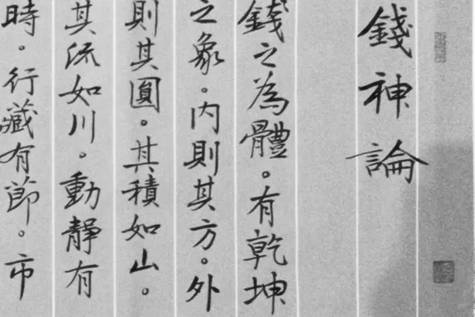 錢神論
錢之為體。有乾坤
之象。內則其方。外
則其圓。其積如山。
其流如川。動靜有
時。行藏有節。市